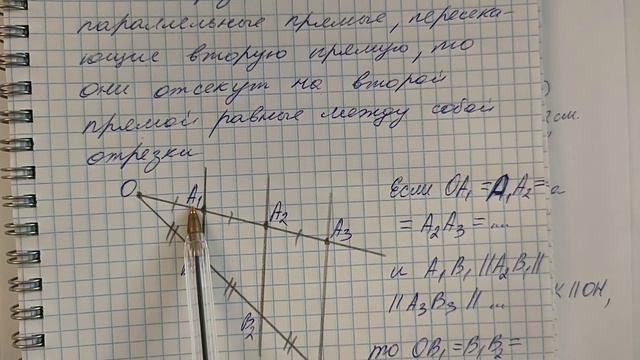 параллельные прямые, пересека-
ющие вторую прямую, то
они отсекут на второй
прямой равные между собой
отрезки
O
A₁
A₂
A₃
B₂
Если OA₁ = A₁A₂ =
= A₂A₃ = ...
и A₁B₁ || A₂B₂ ||
|| A₃B₃ || ...
то OB₁ = B₁B₂ =
)
см.
|| OH,